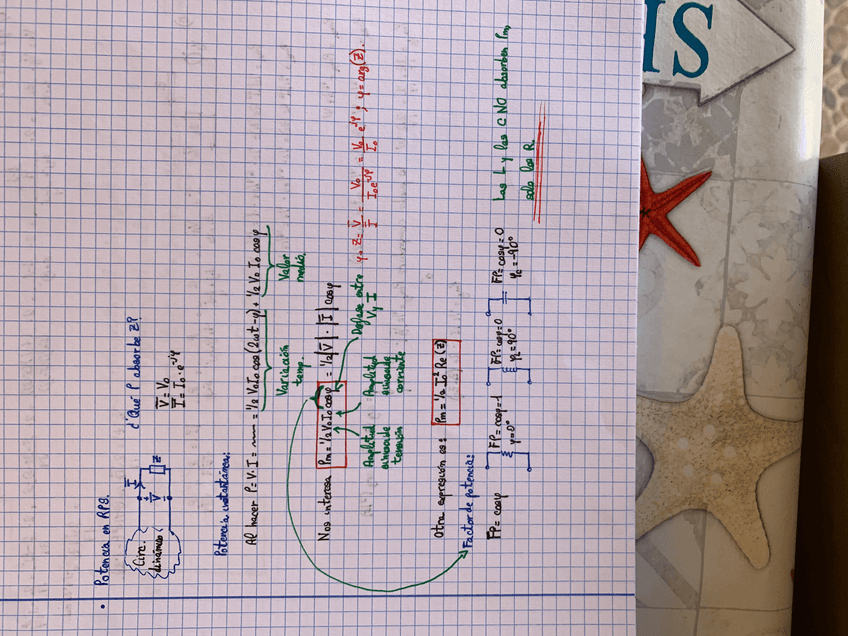 • Potencia en RPS.
Circ.
dinámico
I
+
V
-
Z
¿Qué P absorbe Z?
V = V₀
I = I₀·e^-jφ
Potencia instantánea:
Al hacer P = V·I = = 1/2 V₀I₀ cos(2ωt-φ) + 1/2 V₀ I₀ cosφ
Variación
temp.
Valor
medio.
Nos interesa Pm = 1/2 V₀ I₀ cosφ = 1/2 |V|·|I| cosφ
Amplitud
sinusoide
tensión
Amplitud
sinusoide
corriente
Desfase entre
V y I
y Z = V/I = V₀/I₀e^-jφ = V₀/I₀ e^jφ ; φ = arg(Z).
Otra expresión es: Pm = 1/2 I₀² Re(Z)
Factor de potencia:
FP = cosφ
FP = cosφ = 1
φ = 0°
FP = cosφ = 0
φL = 90°
FP = cosφ = 0
φc = -90°
Las L y las C NO absorben Pm,
solo las R.
SH